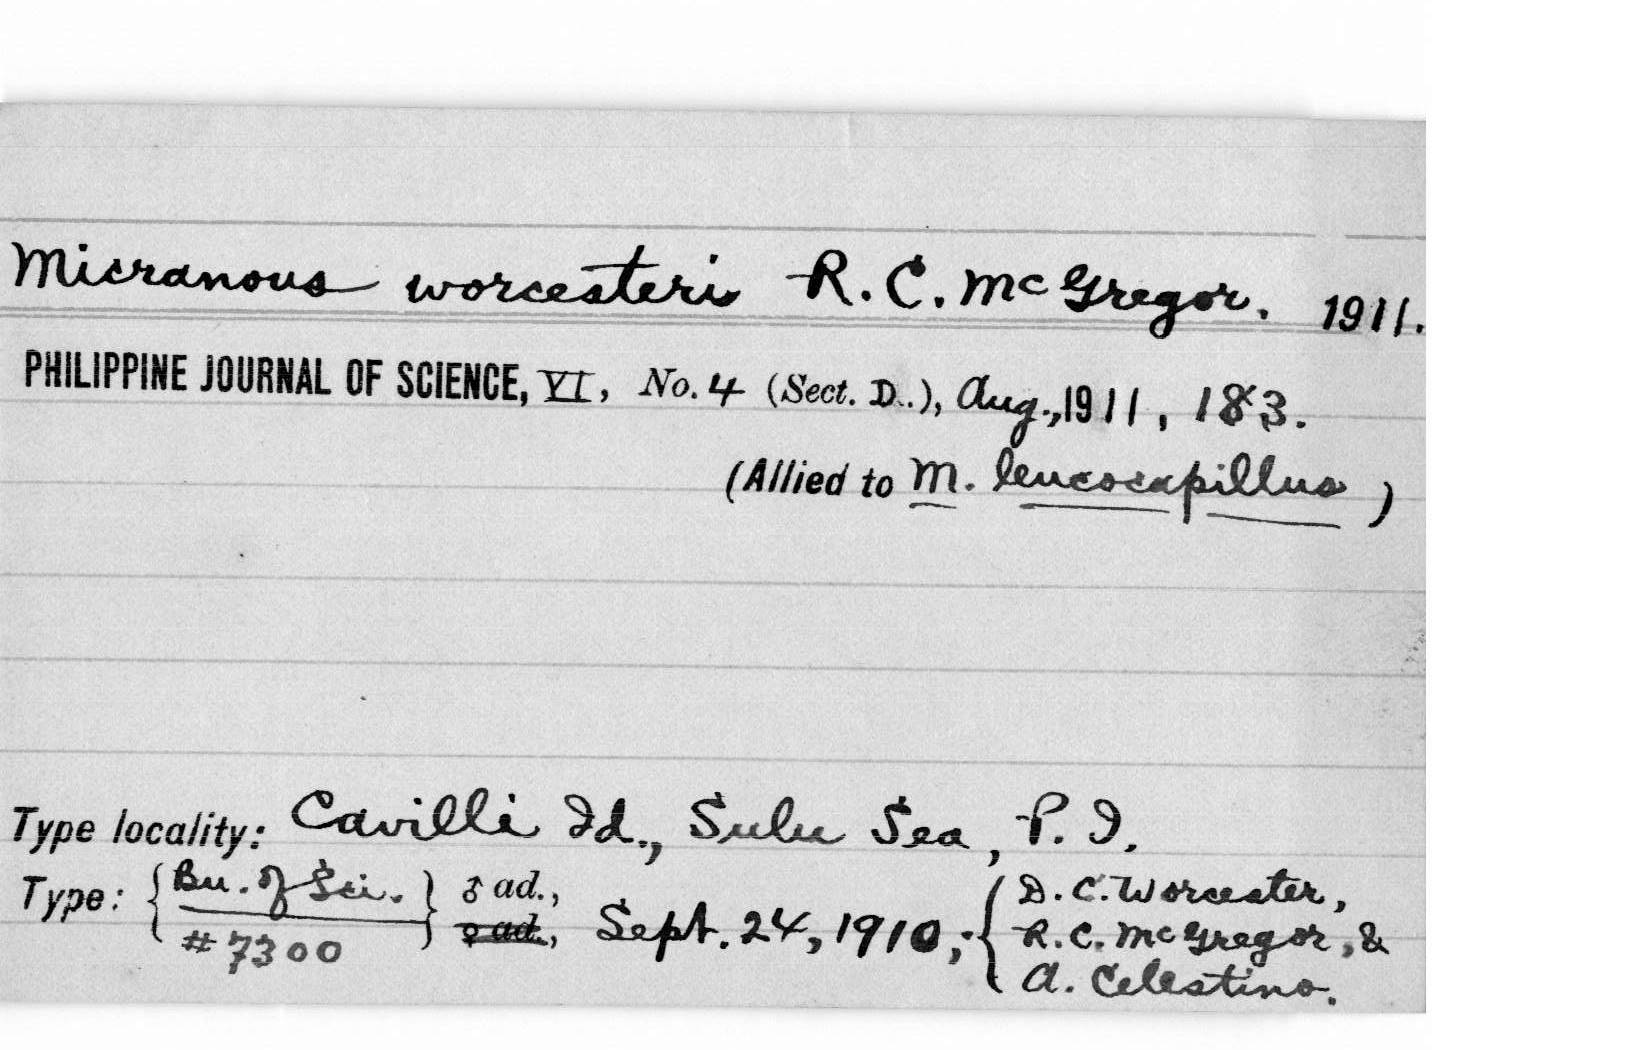 Micranous worcesteri R. C. McGregor. 1911.
PHILIPPINE JOURNAL OF SCIENCE, VI, No. 4 (Sect. D..), Aug., 1911, 183.
(Allied to M. leucocapillus)
Type locality: Cavilli Id., Sulu Sea, P. I.
Type: { Bu. of Sci. } ♂ ad., Sept. 24, 1910; { D. C. Worcester,
#7300 ♀ ad., R. C. McGregor, &
A. Celestino.